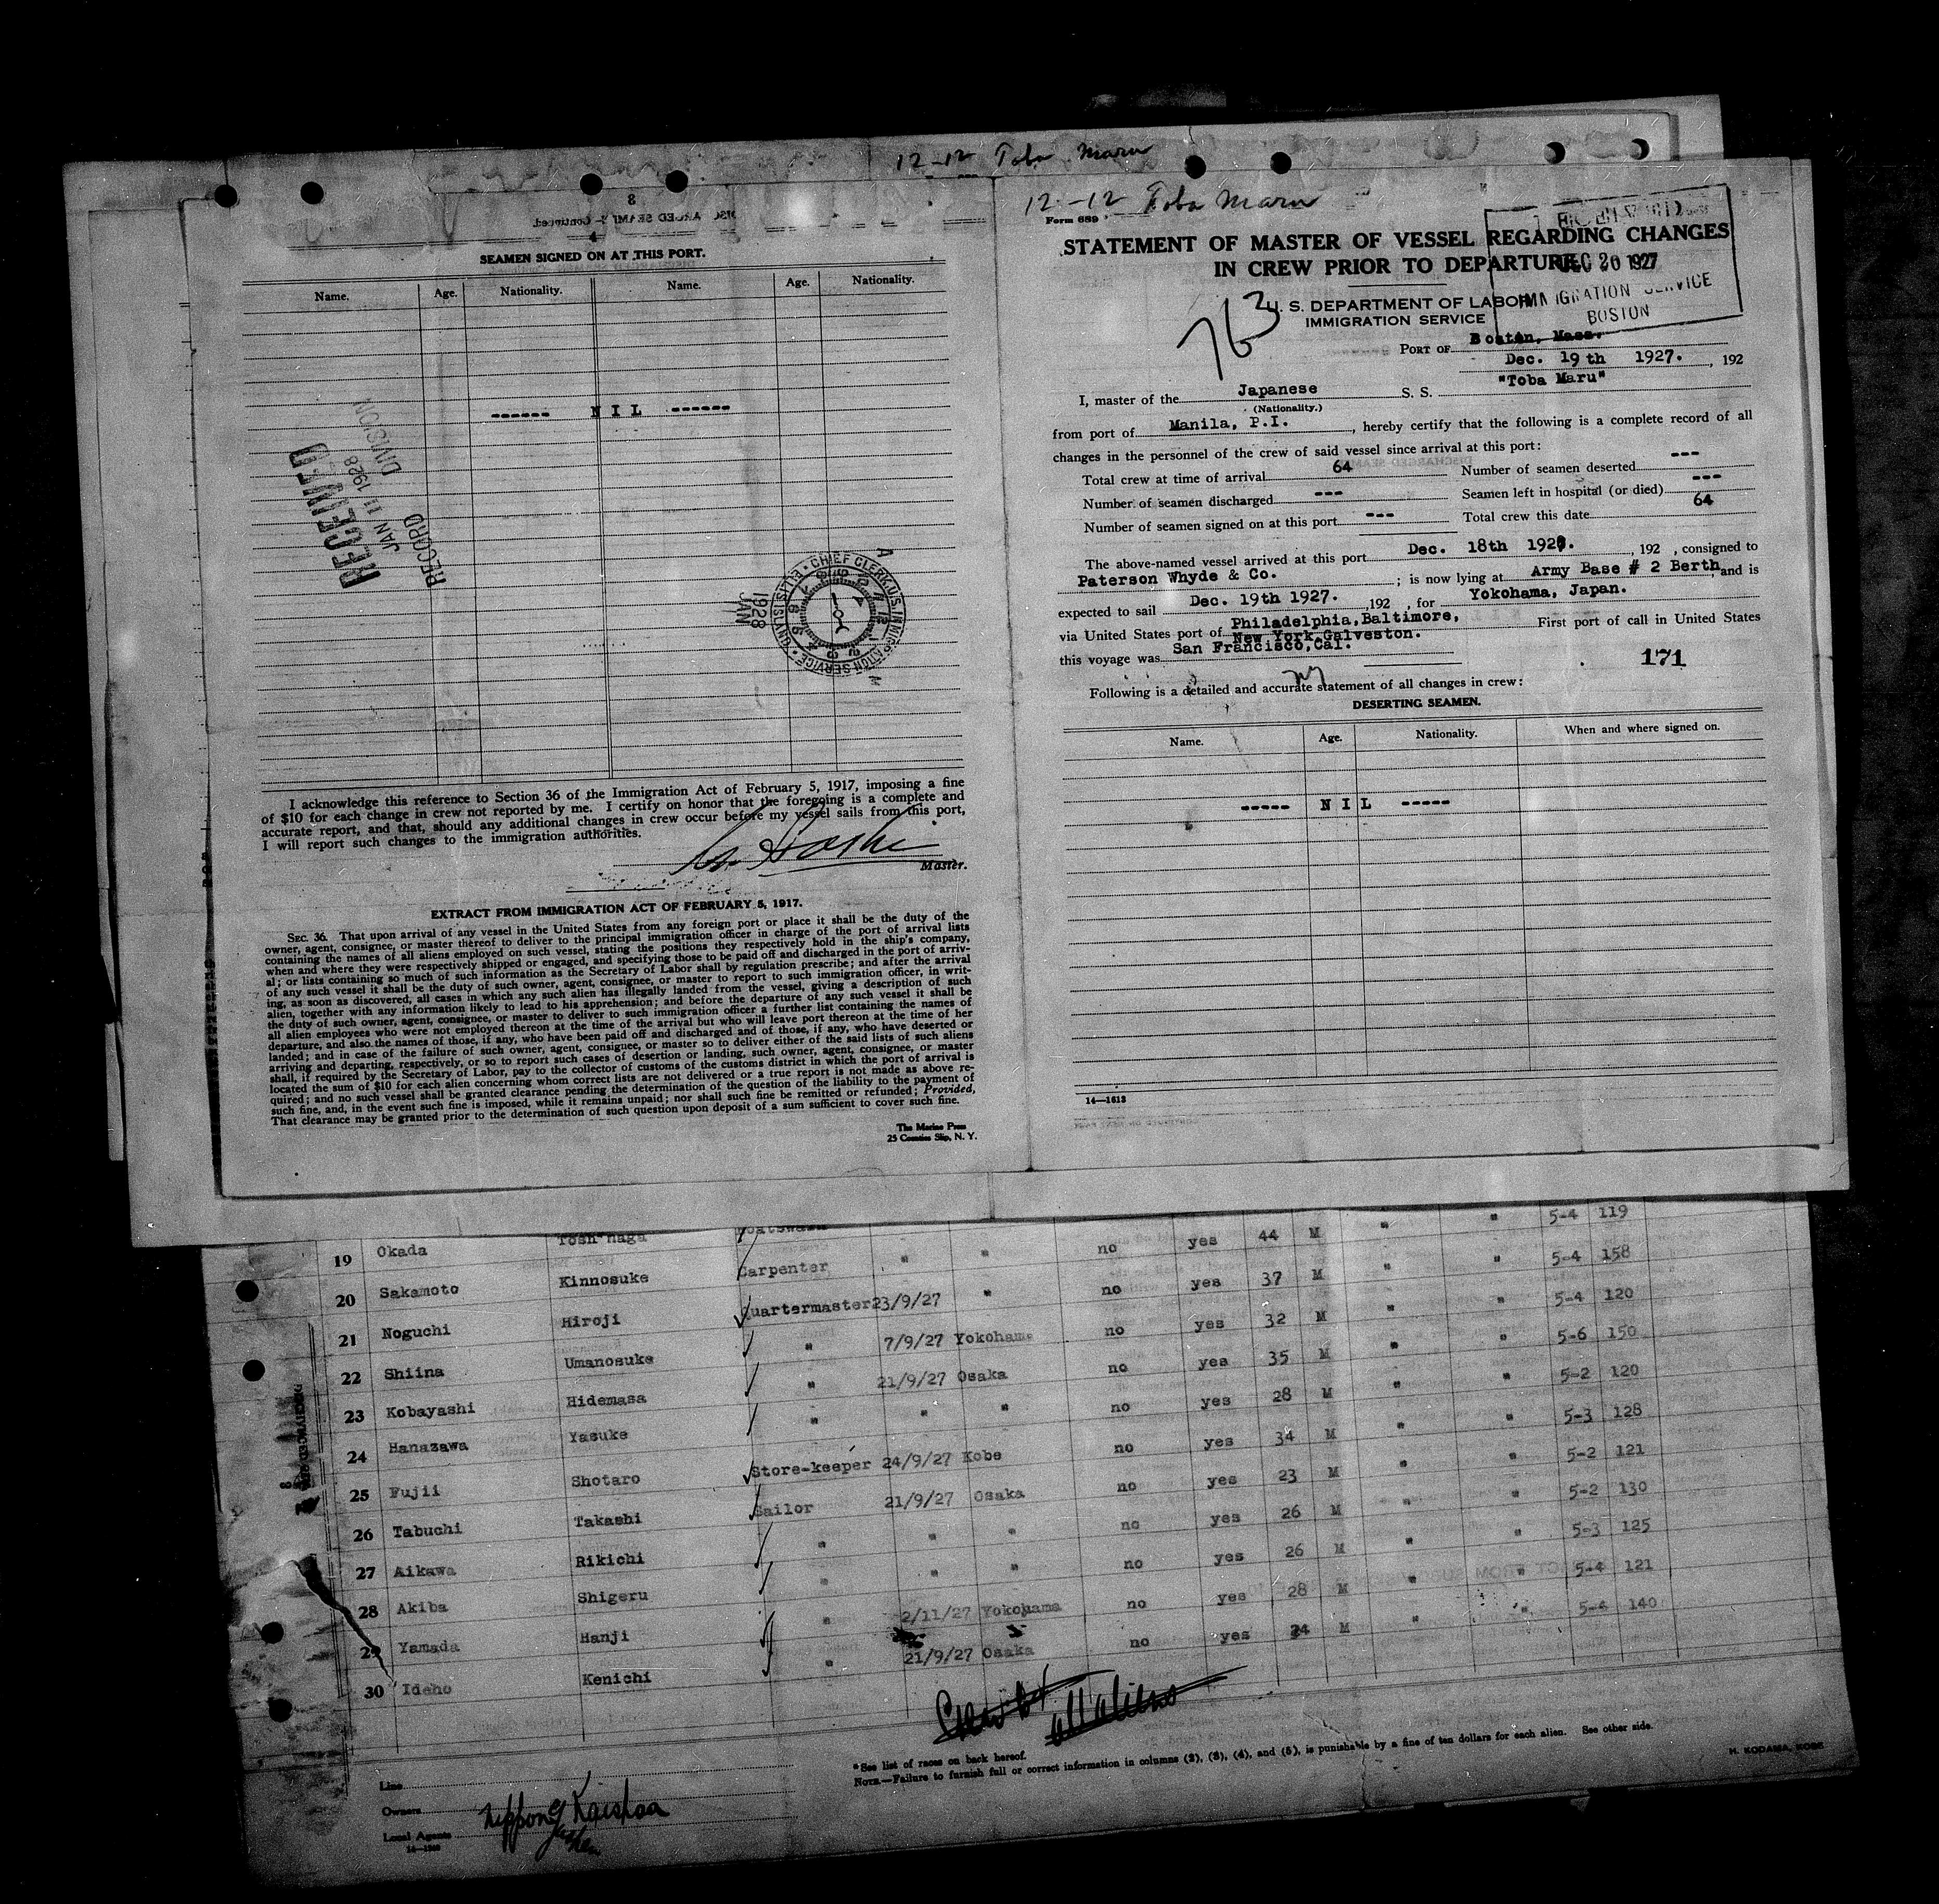 12-12 Toba Maru
8
4
SEAMEN SIGNED ON AT THIS PORT.
Name. Age. Nationality. Name. Age. Nationality.
------ N I L ------
RECEIVED
JAN 11 1928
RECORD DIVISION
CHIEF CLERK, U.S. IMMIGRATION SERVICE
1928
JAN
I acknowledge this reference to Section 36 of the Immigration Act of February 5, 1917, imposing a fine
of $10 for each change in crew not reported by me. I certify on honor that the foregoing is a complete and
accurate report, and that, should any additional changes in crew occur before my vessel sails from this port,
I will report such changes to the immigration authorities.
Master.
EXTRACT FROM IMMIGRATION ACT OF FEBRUARY 5, 1917.
SEC. 36. That upon arrival of any vessel in the United States from any foreign port or place it shall be the duty of the
owner, agent, consignee, or master thereof to deliver to the principal immigration officer in charge of the port of arrival lists
containing the names of all aliens employed on such vessel, stating the positions they respectively hold in the ship's company,
when and where they were respectively shipped or engaged, and specifying those to be paid off and discharged in the port of arriv-
al; or lists containing so much of such information as the Secretary of Labor shall by regulation prescribe; and after the arrival
of any such vessel it shall be the duty of such owner, agent, consignee, or master to report to such immigration officer, in writ-
ing, as soon as discovered, all cases in which any such alien has illegally landed from the vessel, giving a description of such
alien, together with any information likely to lead to his apprehension; and before the departure of any such vessel it shall be
the duty of such owner, agent, consignee, or master to deliver to such immigration officer a further list containing the names of
all alien employees who were not employed thereon at the time of the arrival but who will leave port thereon at the time of her
departure, and also the names of those, if any, who have been paid off and discharged and of those, if any, who have deserted or
landed; and in case of the failure of such owner, agent, consignee, or master so to deliver either of the said lists of such aliens
arriving and departing, respectively, or so to report such cases of desertion or landing, such owner, agent, consignee, or master
shall, if required by the Secretary of Labor, pay to the collector of customs of the customs district in which the port of arrival is
located the sum of $10 for each alien concerning whom correct lists are not delivered or a true report is not made as above re-
quired; and no such vessel shall be granted clearance pending the determination of the question of the liability to the payment of
such fine, and, in the event such fine is imposed, while it remains unpaid; nor shall such fine be remitted or refunded; Provided,
That clearance may be granted prior to the determination of such question upon deposit of a sum sufficient to cover such fine.
The Marine Press
25 Coenties Slip, N. Y.
12-12 Toba Maru
Form 689
STATEMENT OF MASTER OF VESSEL REGARDING CHANGES
IN CREW PRIOR TO DEPARTURE
DEC 20 1927
IMMIGRATION SERVICE
BOSTON
763
U. S. DEPARTMENT OF LABOR
IMMIGRATION SERVICE
PORT OF Boston, Mass.
Dec. 19th 1927. , 192
I, master of the Japanese S. S. "Toba Maru"
(Nationality.)
from port of Manila, P.I. , hereby certify that the following is a complete record of all
changes in the personnel of the crew of said vessel since arrival at this port:
Total crew at time of arrival 64 Number of seamen deserted ---
Number of seamen discharged --- Seamen left in hospital (or died) ---
Number of seamen signed on at this port --- Total crew this date 64
The above-named vessel arrived at this port Dec. 18th 1928. , 192 , consigned to
Paterson Whyde & Co. ; is now lying at Army Base # 2 Berth, and is
expected to sail Dec. 19th 1927. ,192 , for Yokohama, Japan.
via United States port of Philadelphia,Baltimore, New York,Galveston. First port of call in United States
this voyage was San Francisco,Cal.
171
Following is a detailed and accurate statement of all changes in crew:
DESERTING SEAMEN.
Name. Age. Nationality. When and where signed on.
----- N I L -----
14—1613
19 Okada Boatswain " " no yes 44 M " " 5-4 119
20 Sakamoto Kinnosuke Carpenter " no yes 37 M " " 5-4 158
21 Noguchi Hiroji Quartermaster 23/9/27 " no yes 32 M " " 5-4 120
22 Shiina Umanosuke " 7/9/27 Yokohama no yes 35 M " " 5-6 150
23 Kobayashi Hidemasa " 21/9/27 Osaka no yes 28 M " " 5-2 120
24 Hanazawa Yasuke " " " no yes 34 M " " 5-3 128
25 Fujii Shotaro Store-keeper 24/9/27 Kobe no yes 23 M " " 5-2 121
26 Tabuchi Takashi Sailor 21/9/27 Osaka no yes 26 M " " 5-2 130
27 Aikawa Rikichi " " " no yes 26 M " " 5-3 125
28 Akiba Shigeru " " " no yes 28 M " " 5-4 121
29 Yamada Hanji " 2/11/27 Yokohama no yes 24 M " " 5-4 140
30 Ideho Kenichi " 21/9/27 Osaka
*See list of races on back hereof.
NOTE.—Failure to furnish full or correct information in columns (2), (3), (4), and (5), is punishable by a fine of ten dollars for each alien. See other side.
H. KODAMA, KOBE
Line
Owners Nippon Yusen Kaisha
Local Agents